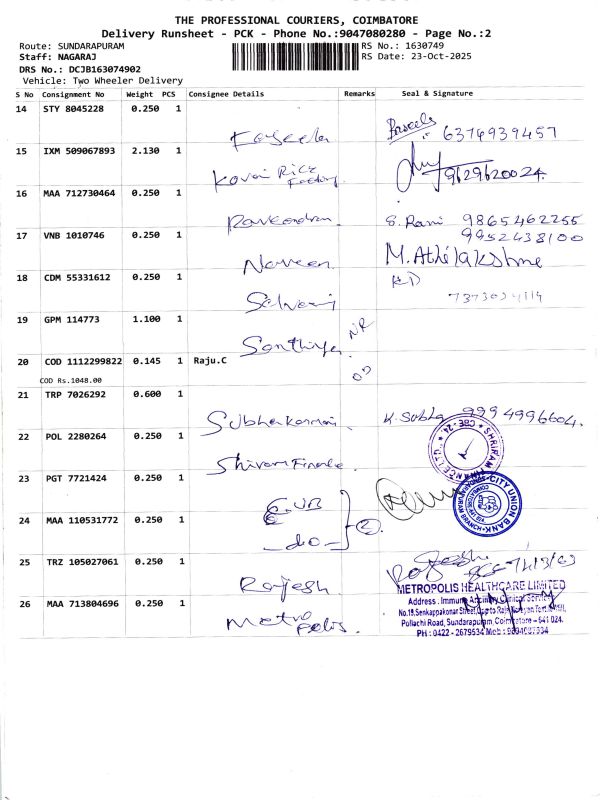 THE PROFESSIONAL COURIERS, COIMBATORE
Delivery Runsheet - PCK - Phone No.:9047080280 - Page No.:2
Route: SUNDARAPURAM
RS No.: 1630749
Staff: NAGARAJ
RS Date: 23-Oct-2025
DRS No.: DCJB163074902
Vehicle: Two Wheeler Delivery
S No Consignment No Weight PCS Consignee Details Remarks Seal & Signature
14 STY 8045228 0.250 1
6374939457
15 IXM 509067893 2.130 1
Kovai Rice Factory.
9629620024.
16 MAA 712730464 0.250 1
S. Rani 9865462255
17 VNB 1010746 0.250 1
9952438100
Naveen
M. Athilakshme
18 CDM 55331612 0.250 1
Selvaraj
19 GPM 114773 1.100 1
Santhiya.
NR
20 COD 1112299822 0.145 1 Raju.C
OD
COD Rs.1048.00
21 TRP 7026292 0.600 1
K. Subha 9994996604.
22 POL 2280264 0.250 1
Shriram Finance.
SHRIRAM FINANCE LTD
CBE-24
23 PGT 7721424 0.250 1
CUB
CITY UNION BANK
24 MAA 110531772 0.250 1
-do-
2
25 TRZ 105027061 0.250 1
Rajesh
Rajesh
26 MAA 713804696 0.250 1
Metro Polis.
METROPOLIS HEALTHCARE LIMITED
No.18, Senkappakonar Street
Pollachi Road, Sundarapuram, Coimbatore - 641 024.
PH : 0422 - 2679534 Mob :